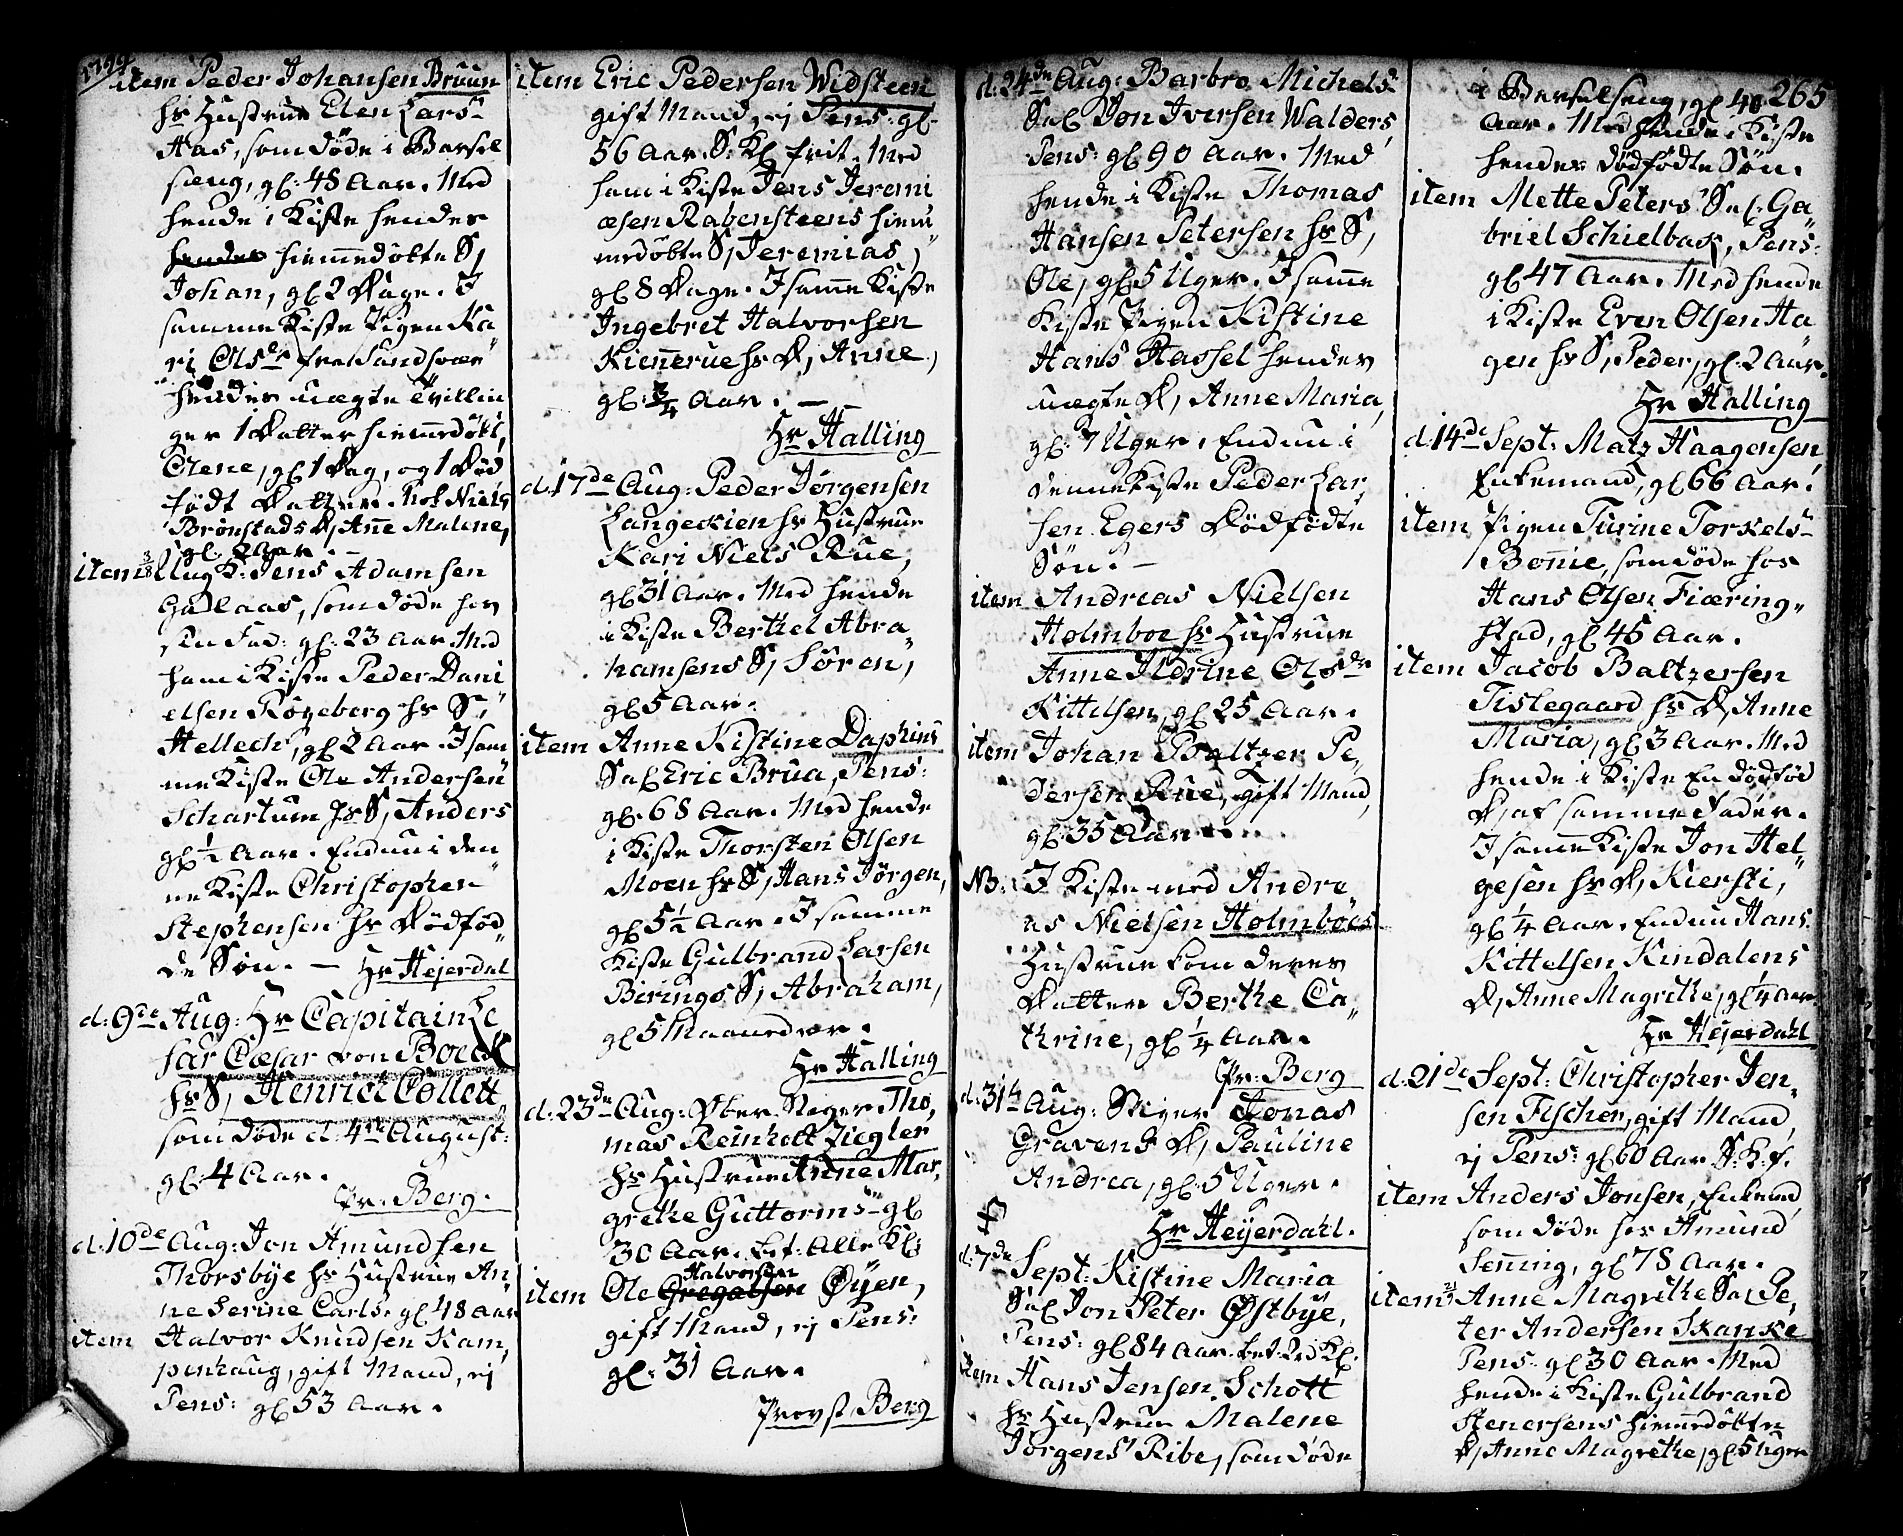 1799
item Peder Johansen Bruun
hs Hustrue Elen Lars
Aas, som døde i Barsel
sæng, gl: 48 Aar. Med
hende i Kiste hendes
hendes hiemmedøbte S,
Johan, gl 2 Dage. I
samme Kiste Pigen Ka
ri Olsdr fra Sandsvær
hendes uægte Tvillin
ger 1 Datter hiemmedøbt,
Olene, gl 1 Dag, og 1 Død
født Datter. Niels
Brønstads D, Anne Malene,
gl. 2 Aar. —
item Aug K: Jens Adamsen
Gallaas, som døde hos
sin Fad: gl. 23 Aar. Med
ham i Kiste Peder Dani
elsen Røgeberg hs S,
Hellech, gl 2 Aar. I sam
me Kiste Ole Andersen
Schartum hs S, Anders
gl ½ Aar. Endnu i den
ne Kiste Christopher
Stephensen hs Dødfød
de Søn. — Hr Hejerdal
d: 9de Aug: Hr Capitain Ce
sar Cæsar von Boeck
hs S, Henrich Collett
som døde d: 4de August:
gl 4 Aar.
Pr: Berg.
d: 10de Aug: Jon Amundsen
Thorsbye hs Hustrue An
ne Serine Carls. gl 48 Aar
item Halvor Knudsen Kam
penhaug, gift Mand, ej
Pens: gl 53 Aar.
item Eric Pedersen Widsteen
gift Mand, ej Pens: gl.
56 Aar. S: Kl frit. Med
ham i Kiste Jens Jeremi
æsen Rabensteens hiem
medøbte S, Jeremias,
gl 8 Dage. I samme Kiste
Ingebret Halvorsen
Kiennerue hs D, Anne,
gl. ¾ Aar. —
Hr Halling
d: 17de Aug: Peder Jørgensen
Langechien hs Hustrue
Kari Niels Rue,
gl 31 Aar. Med hende
i Kiste Berthel Abra
hamsens S, Søren,
gl 5 Aar.
item Anne Kistine Daphins
Sal Eric Brua, Pens:
gl. 68 Aar. Med hende
i Kiste Thorsten Olsen
Moen hs S, Hans Jørgen,
gl 5½ Aar. I samme
Kiste Gulbrand Larsen
Birings S, Abraham,
gl 5 Maaneder.
Hr Halling
d: 23de Aug: Ober Stiger Tho
mas Reinholt Ziegler
hs Hustrue Anne Mar
grethe Guttorms gl
30 Aar. bet. Alle Kl:
Halvorsen
item Ole Gregarsen Øyen,
gift Mand, ej Pens:
gl. 31 Aar.
Provst Berg
d: 24de Aug: Barbro Michels
Sal Jon Iversen Walders,
Pens: gl 90 Aar. Med
hende i Kiste Thomas
Hansen Petersen hs S,
Ole, gl 5 Uger. I samme
Kiste Pigen Kistine
Hans Hassel hendes
uægte D, Anne Maria,
gl. 7 Uger. Endnu i
denne Kiste Peder Lar
sen Egers Dødfødte
Søn. —
item Andreas Nielsen
Holmboe hs Hustrue
Anne Ildrine Olsdr
Kittelsen, gl 25 Aar.
item Johan Baltzer Pe
dersen Rue, gift Mand,
gl. 35 Aar.
NB: I Kiste med Andre
as Nielsen Holmböes
Hustrue kom deres
Datter Berthe Ca
thrine, gl ¼ Aar.
Pr: Berg
d: 31te Aug: Stiger Jonas
Gravens D, Pauline
Andrea, gl. 5 Uger.
Hr Heyerdahl.
d: 7de Sept: Kistine Maria
Sal Jon Peter Østbye,
Pens: gl 84 Aar. bet. 2rd Kl.
item Hans Jensen Schott
hs Hustrue Malene
Jørgens Ribe, som døde
265
i Barselseng, gl 40
Aar. Med hende i Kiste
hendes dødfødte Søn.
item Mette Peters Sal: Ga
briel Schielbak, Pens:
gl 47 Aar. Med hende
i Kiste Even Olsen Ha
gen hs S, Peder, gl. 2 Aar.
Hr Halling
d: 14de Sept: Matz Haagensen,
Enkemand, gl 66 Aar.
item Pigen Turine Torkels
Bonnie, som døde hos
Hans Olsen Fiæring
stad, gl 45 Aar.
item Jacob Baltzersen
Tislegaard hs D, Anne
Maria, gl 3 Aar. Med
hende i Kiste En dødfød
D, af samme Fader.
I samme Kiste Jon Hel
gesen hs D, Kiersti,
gl ¼ Aar. Endnu Hans
Kittelsen Kindalens
D, Anne Magrethe, gl ¼ Aar
Hr Hejerdahl.
d: 21de Sept: Christopher Jen
sen Fischer, gift Mand,
ej Pens: gl 60 Aar. S: K: f.
item Anders Jonsen, Enkemd,
som døde hos Amund
Semming, gl 78 Aar.
item Anne Magrethe Sal Pe
ter Andersen Skanke
Pens: gl 30 Aar. Med
hende i Kiste Gulbrand
Stenersens hiemmedøbte
D, Anne Magrethe, gl 5 Uger